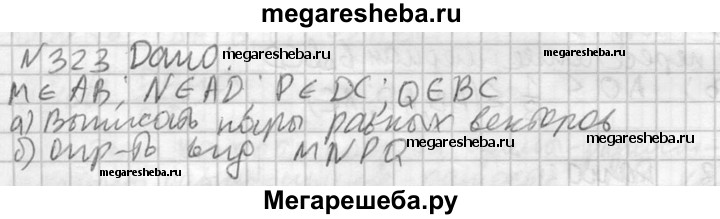 megaresheba.ru
N 323 Дано:
megaresheba.ru megaresheba.ru
M∈AB; N∈AD; P∈DC; Q∈BC
а) Выписать пары равных векторов
б) опр-ть вид MNPQ
megaresheba.ru
megaresheba.ru megaresheba.ru
Мегарешеба.ру